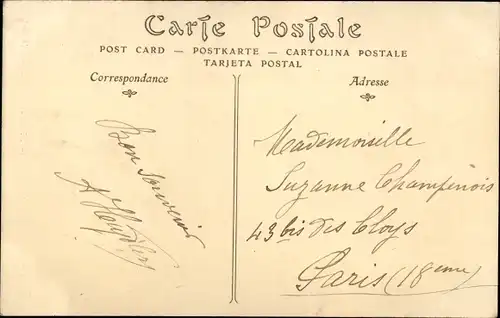 Carte Postale
POST CARD — POSTKARTE — CARTOLINA POSTALE
TARJETA POSTAL
Correspondance
Bon Souvenir
Adresse
Mademoiselle
Suzanne Champenois
43 bis des Cloys
Paris (18eme)